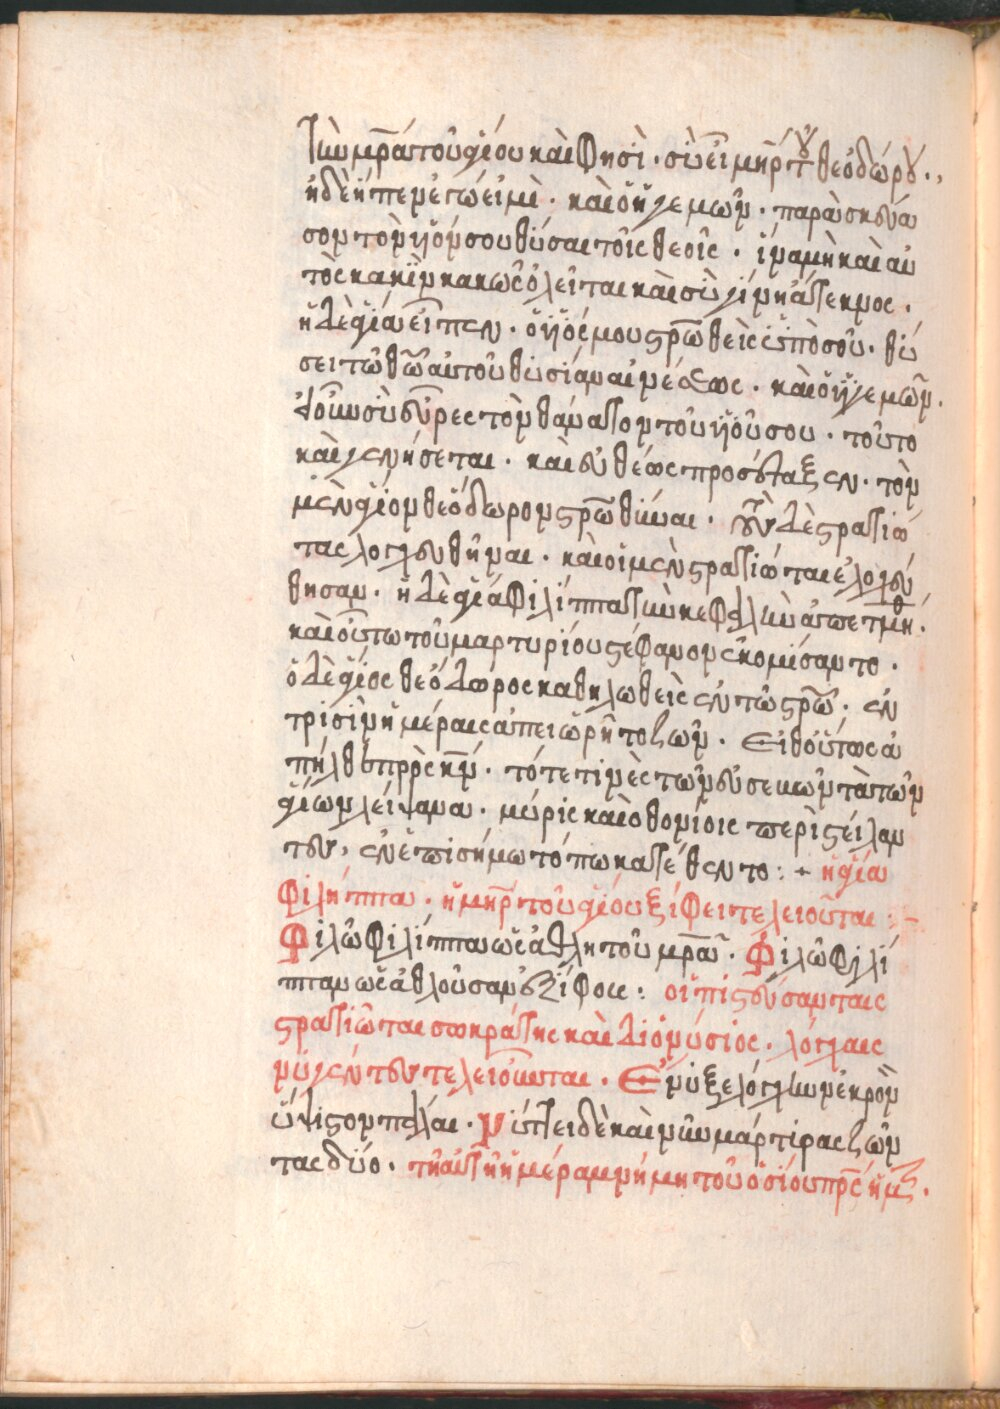 τὴν μρ̅α τοῦ ἁγίου καὶ φησὶ · σὺ εἶ μῆρ τοῦ θεοδώρου ·,
ἡ δὲ ἥπερ ἐγώ εἰμὶ · καὶ ὁ ἡγεμὼν · παρασκεύα
σον τὸν ὑϊόν σου θύσαι τοῖς θεοῖς · ἵνα μὴ καὶ αυ
τὸς κακὴν κακῶς ὀλεῖται καὶ σὺ γίνη ἄτεκνος ·
ἡ δὲ ἁγία εἶπεν · ὁ ὑϊός μου στρω̅θεὶς ὑπὸ σοῦ · θύ
σει τῶ θω̅ αυτοῦ θυσίαν αινέσεως · καὶ ὁ ἡγεμὼν ·
σὺ εὗρες τὸν θάνατον τοῦ ὑϊοῦ σου · τοῦτο
καὶ γενήσεται · καὶ ευθέως προσέταξεν · τὸν
μὲν ἅγιον θεόδωρον στρω̅θῆναι · τοὺς δὲ στρατιώ
τας λογχευθῆναι · καὶ οἱ μὲν στρατιώται ἐλογχεύ
θησαν · ἡ δὲ ἁγία Φιλίππα τὴν κεφαλὴν ἀπετμήθη ·
καὶ οὕτω τοῦ μαρτυρίου στέφανον ἐκομίσαντο ·
ὁ δὲ ἅγιος θεόδωρος καθηλωθεὶς ἐν τῶ στρω̅ · ἐν
τρισὶν ἡμέραις ἀπειώρητο ζῶν · Εἶθ οὕτως ἀ
πῆλθε πρὸς κν̅ · τότε τινὲς τῶν εὐσεβῶν τὰ τῶν
ἁγίων λείψανα · μύροις καὶ ὀθονίοις περὶστείλαν
τες, ἐν ἐπισήμω τόπω κατέθεντο : + ἡ ἁγία
Φιλήππα · ἡ μῆρ τοῦ ἁγίου ξίφει τελειοῦται : –
Φιλῶ Φιλίππαν ὡς ἀθλητοῦ μρ̅α · Φιλῶ Φιλί
ππαν ὡς ἀθλοῦσαν ἐκ ξίφους : οἱ πιστεύσαντες
στρατιῶται σωκράτης καὶ Διονύσιος · λόγχαις
νυγέντες τελειοῦνται · Ἔνυξε λόγχην νεκρὸν
ὕψιστον πάλαι · Νύττει δὲ καὶ νῦν μάρτυρας ζῶν
τας δύο · τῆ αὐτῆ ἡμέρα μνήμη τοῦ ὁσίου πρ̅ς ἡμῶ̅ ·